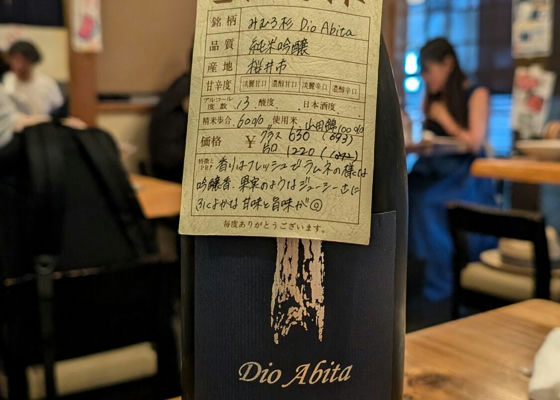 銘柄 みむろ杉 Dio Abita
品質 純米吟醸
産地 桜井市
甘辛度 淡麗甘口 濃醇甘口 淡麗辛口 濃醇辛口
アルコール度数 13 酸度 日本酒度
精米歩合 60% 使用米 山田錦100%
価格 ¥ グラス 630 (693)
1220
香りはフレッシュでラムネの様な
吟醸香。果実のようなジューシーさに
ふくよかな甘味と旨味が◎
毎度ありがとうございます。
Dio Abita